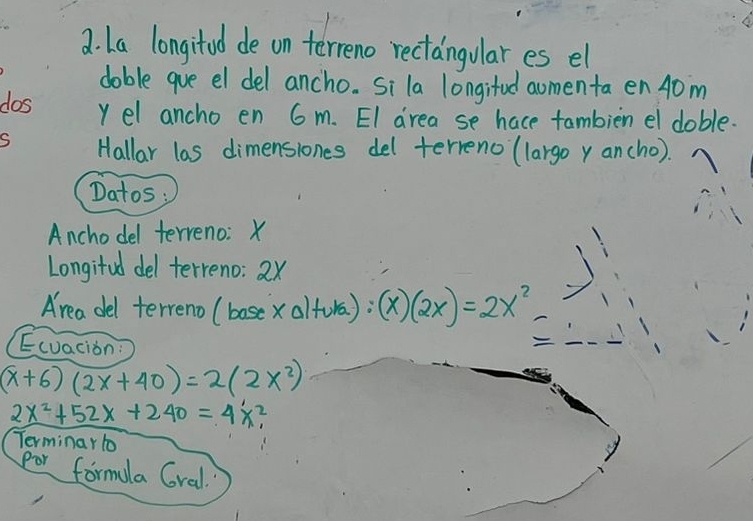 2. La longitud de un terreno rectángular es el
doble que el del ancho. Si la longitud aumenta en 40 m
dos
y el ancho en 6 m. El área se hace también el doble.
s
Hallar las dimensiones del terreno (largo y ancho).
Datos:
Ancho del terreno: X
Longitud del terreno: 2X
Área del terreno (base x altura): (x)(2x) = 2x²
Ecuación:
(x+6) (2x+40) = 2(2x²)
2x² + 52x + 240 = 4x²
Terminarlo
por fórmula Gral.